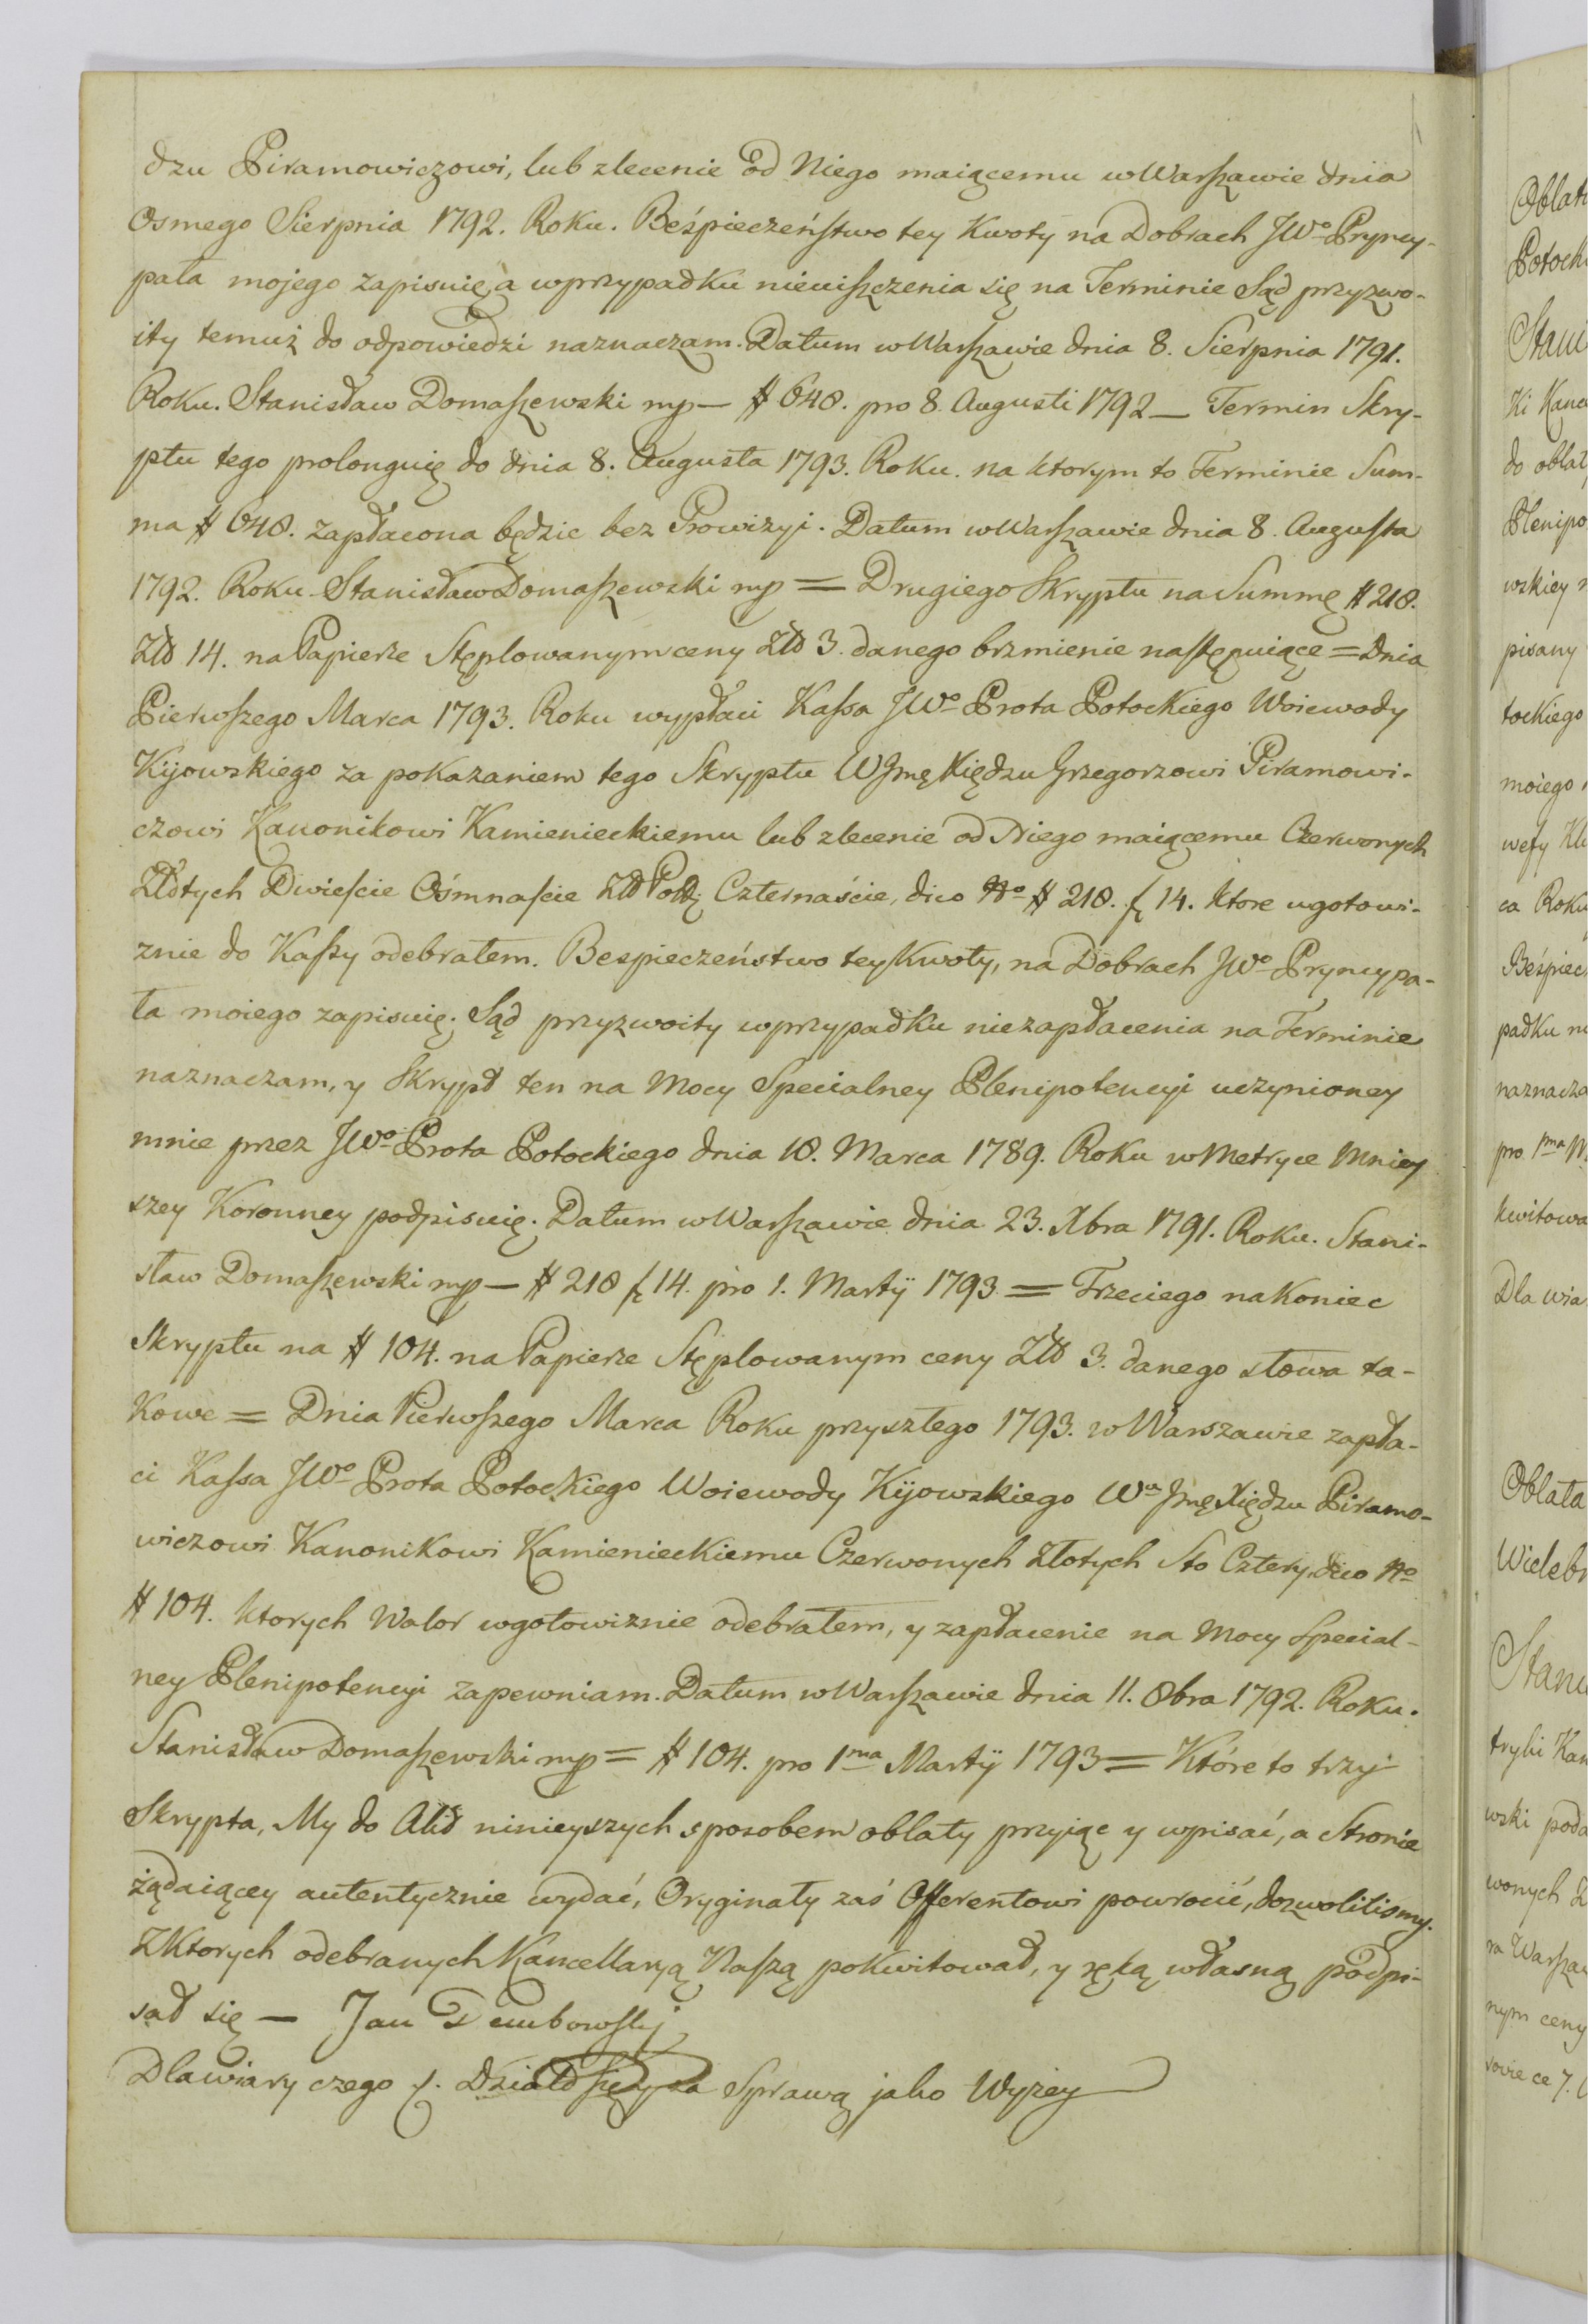 dzu Piramowiczowi, lub zlecenie od Niego maiącemu w Warszawie dnia
Osmego Sierpnia 1792. Roku. Beśpieczeństwo tey Kwoty na Dobrach JWo Pryncy-
pała mojego zapisuię, a wprzypadku nieuiszczenia się na Terminie Sąd przyzwo-
ity temuż do odpowiedzi naznaczam. Datum w Warszawie dnia 8. Sierpnia 1791.
Roku. Stanisław Domaszewski mp — # 648. pro 8. Augusti 1792 — Termin Skry-
ptu tego prolonguię do dnia 8. Augusta 1793. Roku. na ktorym to Terminie Sum-
ma # 648. zapłacona będzie bez Prowizyi. Datum w Warszawie dnia 8. Augusta
1792. Roku Stanisław Domaszewski mp = Drugiego Skryptu na Summę # 218.
Złł 14. na Papierze Stęplowanym ceny Złł 3. danego brzmienie następuiące = Dnia
Pierwszego Marca 1793. Roku wypłaci Kassa JWo Prota Potockiego Woiewody
Kijowskiego za pokazaniem tego Skryptu WJmę Xiędzu Grzegorzowi Piramowi-
czowi Kanonikowi Kamienieckiemu lub zlecenie od Niego maiącemu Czerwonych
Złłotych Dwieście Ośmnaście Złł Polę Czternaście, dico No # 218. f 14. ktore ugotowi-
znie do Kassy odebrałem. Bespieczeństwo tey Kwoty, na Dobrach JWo Pryncypa-
ła moiego zapisuię; Sąd przyzwoity wprzypadku niezapłacenia na Terminie
naznaczam, y Skrypt ten na Mocy Specialney Plenipotencyi uczynioney
mnie przez JWo Prota Potockiego dnia 18. Marca 1789. Roku w Metryce Mniey
szey Koronney podpisuię. Datum w Warszawie dnia 23. Xbra 1791. Roku. Stani-
sław Domaszewski mp — # 218 f 14. pro 1. Martÿ 1793 = Trzeciego nakoniec
Skryptu na # 104. na Papierze Stęplowanym ceny Złł 3. danego słowa ta-
kowe = Dnia Pierwszego Marca Roku przyszłego 1793. w Warszawie zapła-
ci Kassa JWo Prota Potockiego Woiewody Kijowskiego Wu Jmę Xiędzu Piramo-
wiczowi Kanonikowi Kamienieckiemu Czerwonych Złotych Sto Cztery, dico No
# 104. ktorych Walor wgotowiznie odebrałem, y zapłacenie na Mocy Special-
ney Plenipotencyi zapewniam. Datum w Warszawie dnia 11. 8bra 1792. Roku.
Stanisław Domaszewski mp = # 104. pro 1ma Martÿ 1793 = Które to trzy
Skrypta, My do Akt ninieyszych sposobem oblaty przyjąć y wpisać, a Stronie
żądaiącey autentycznie wydać, Oryginały zaś Offerentowi powrocić, dozwolilismy.
Z Ktorych odebranych Kancellaryą Naszą pokwitował, y ręką własną podpi-
sał się — Jan Dembowskj
Dla wiary czego f. Działo się y za Sprawą jako Wyżey
Oblat
Potock
Stani
ki Kanc
do oblat
Plenipo
wskiey
pisany
tockiego
moiego
ca Roku
Beśpiec
padku
naznacza
pro 1ma M
kwitowa
Dla wia
Oblata
Wielebn
wski poda
wonych Z
ra Warsza
nym ceny